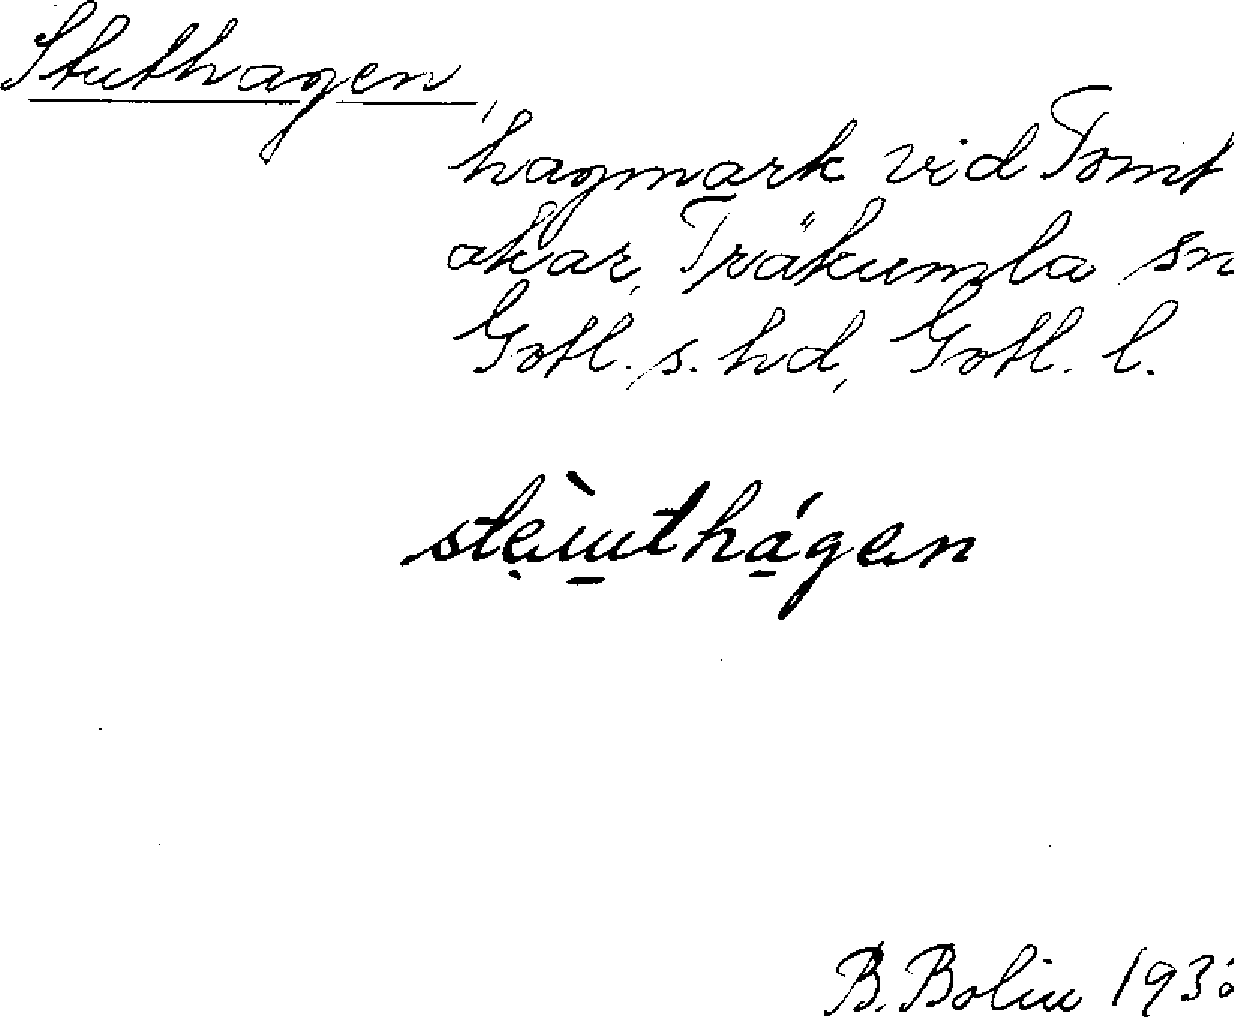 Stuthagen,
hagmark vid Tomt
akar, Träkumla sn
Gotl. s. hd, Gotl. l.
stèuthágen
B. Bolin 193